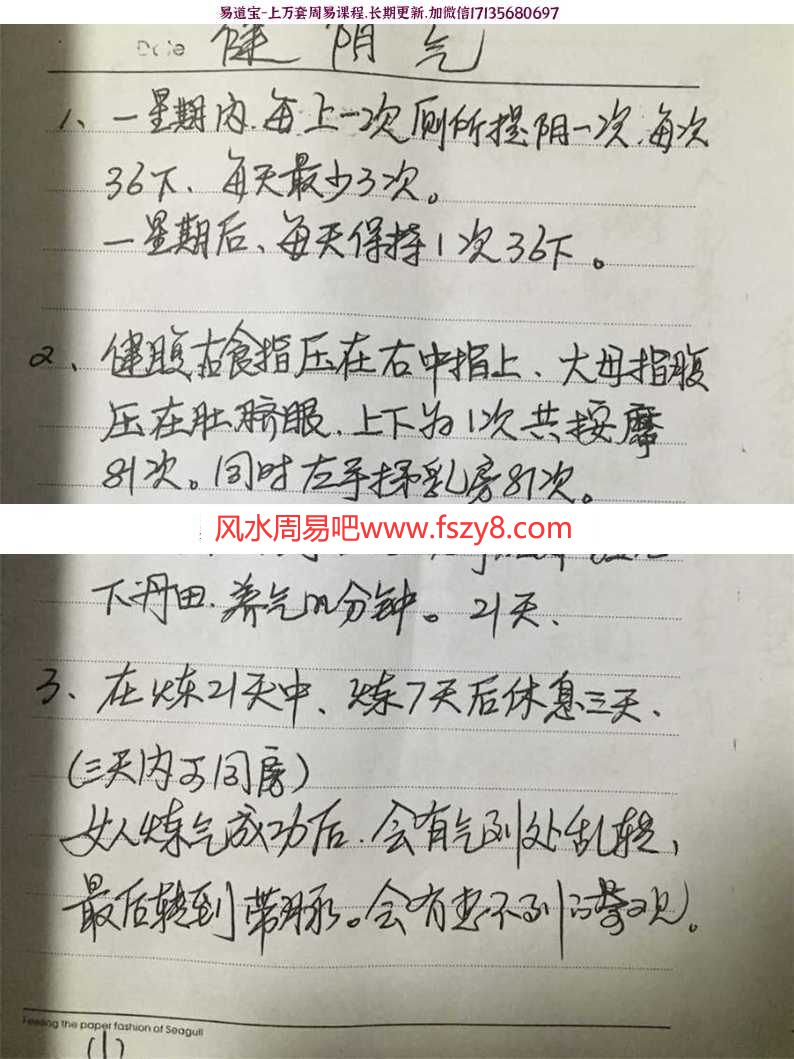 易道宝-上万套周易课程.长期更新.加微信17135680697
Date 健阴气
1、一星期内.每上一次厕所提阴一次.每次
36下、每天最少3次。
一星期后、每天保持1次36下。
2、健腹右食指压在右中指上、大母指腹
压在肚脐眼.上下为1次共按摩
81次。同时左手揉乳房81次。
风水周易吧www.fszy8.com
下丹田.养气几分钟。21天、
3、在炼21天中、炼7天后休息三天、
(三天内可同房)
女人炼气成功后.会有气到处乱转,
最后转到带脉。会有想不到的景观。
Feeling the paper fashion of Seagull
(1)